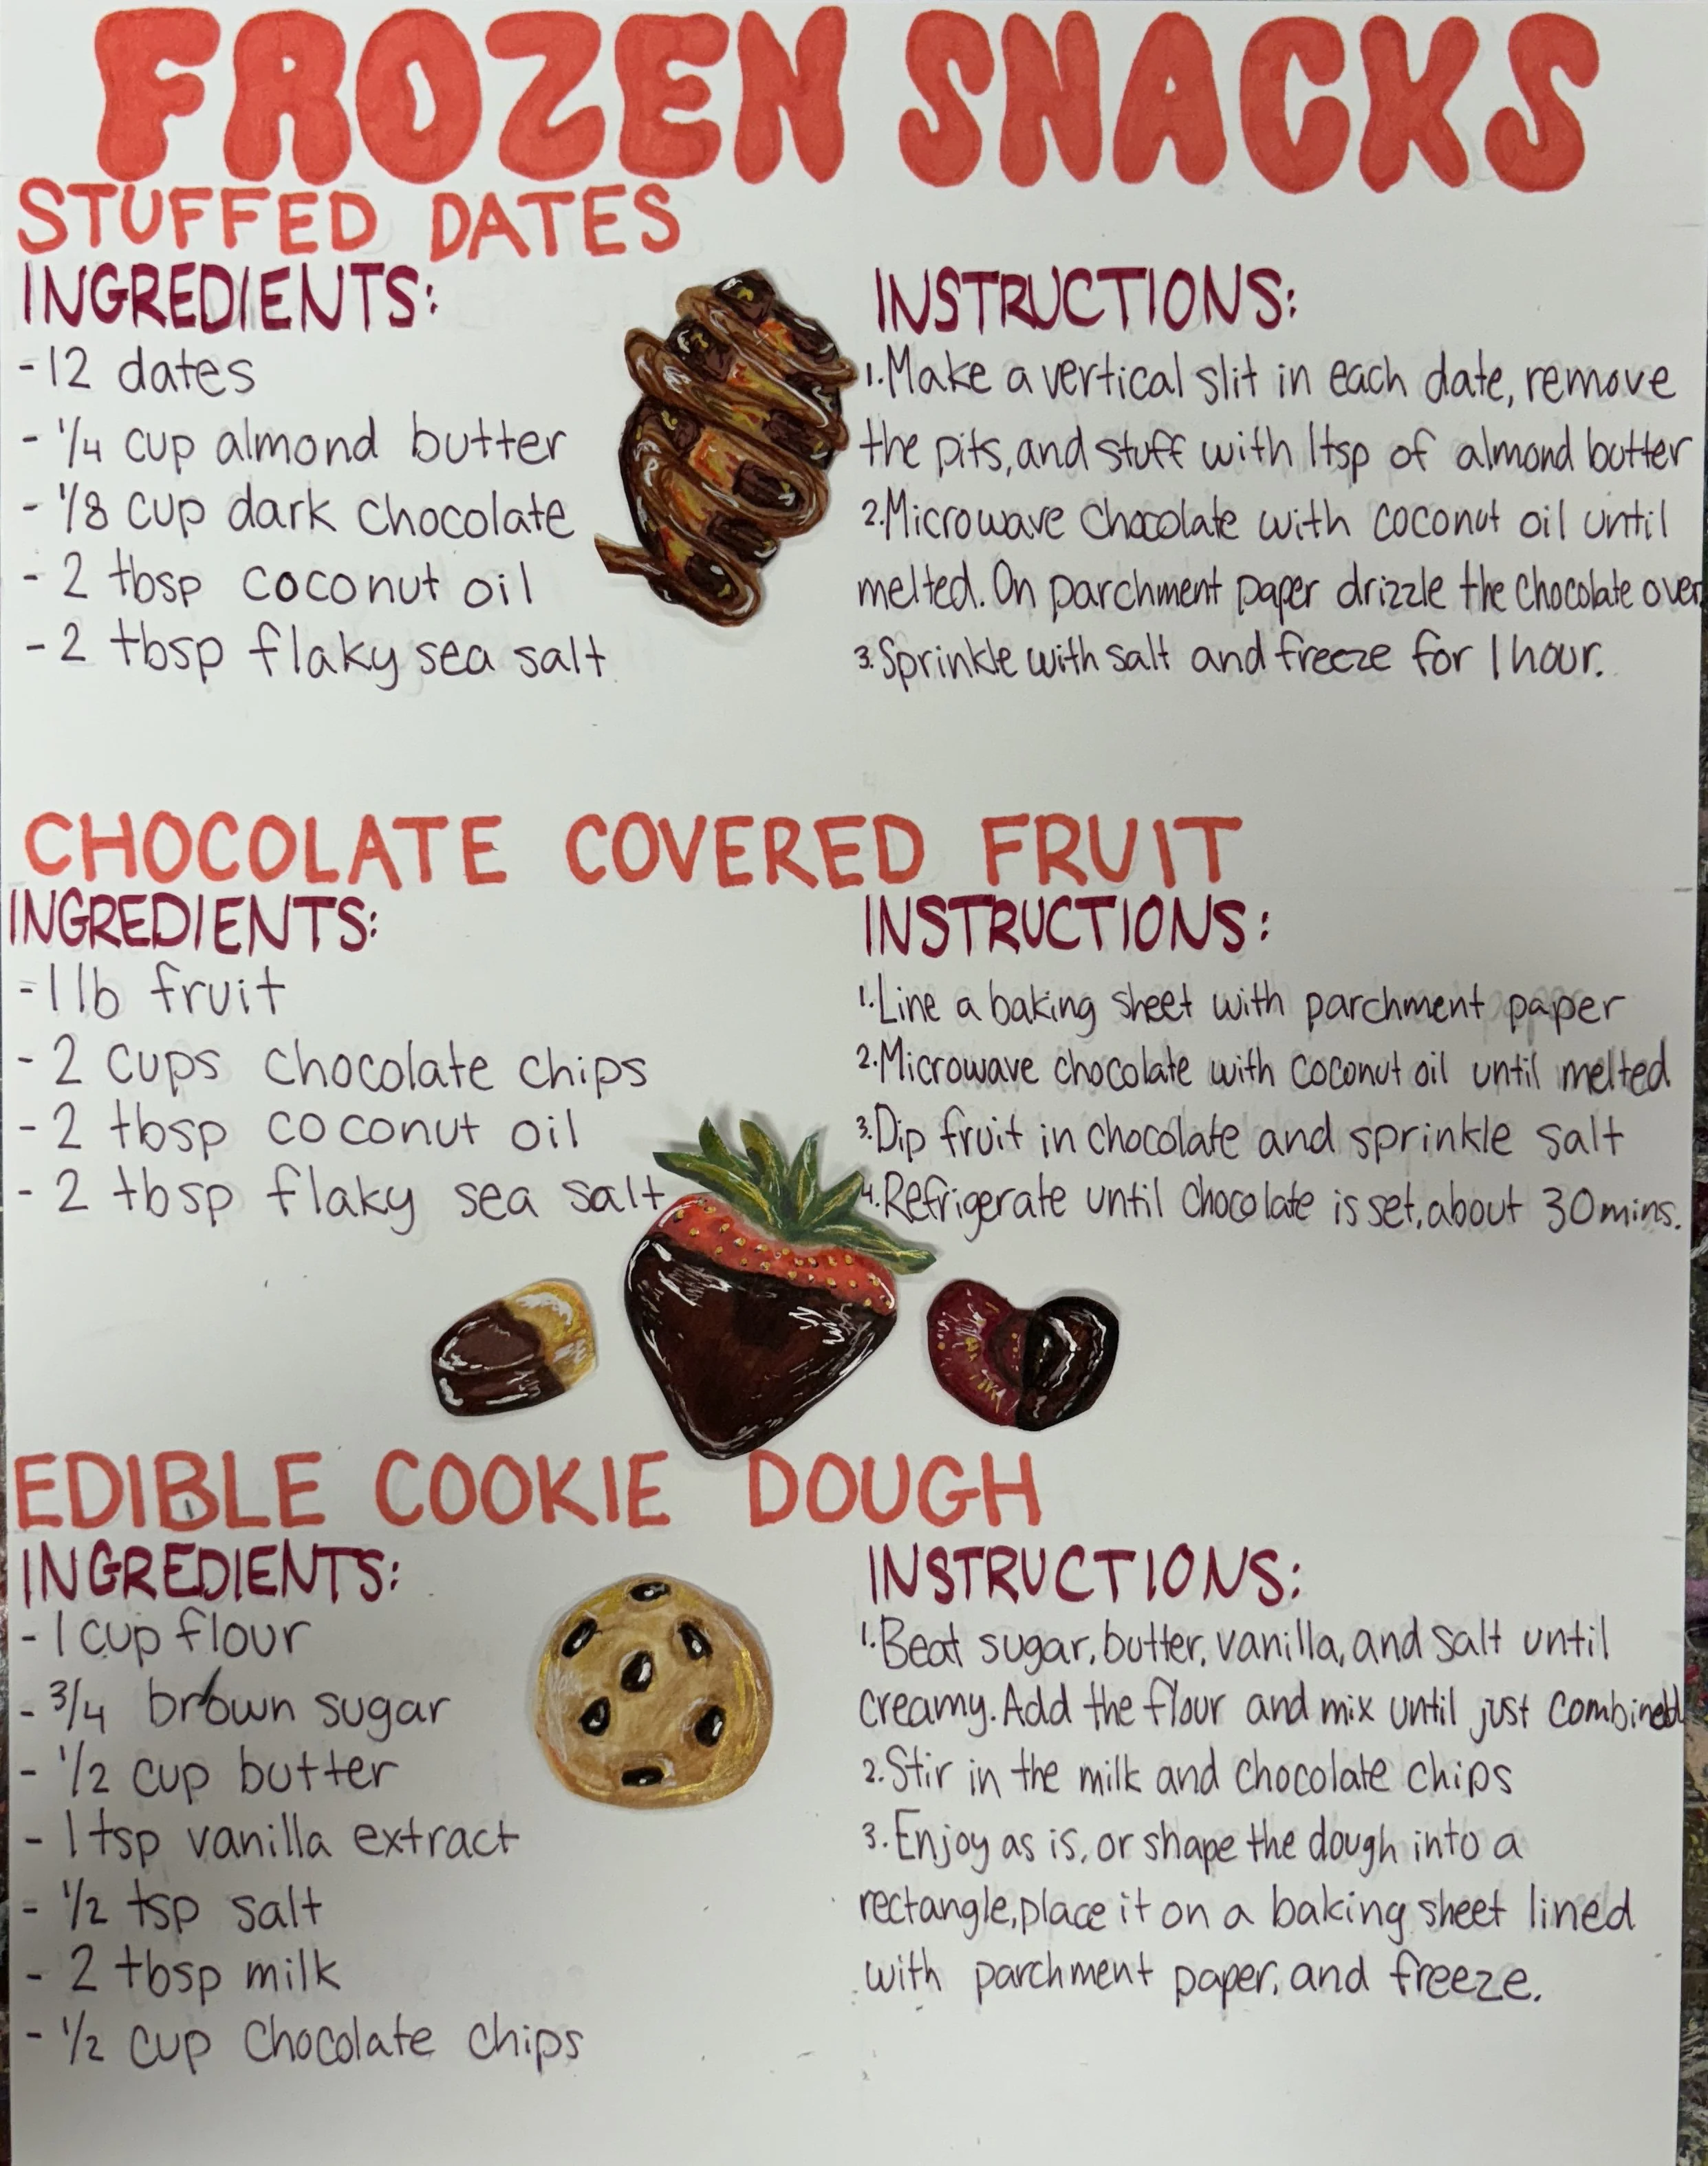 FROZEN SNACKS
STUFFED DATES
INGREDIENTS:
-12 dates
- 1/4 cup almond butter
- 1/8 cup dark chocolate
- 2 tbsp coconut oil
- 2 tbsp flaky sea salt
INSTRUCTIONS:
1.Make a vertical slit in each date, remove
the pits, and stuff with 1tsp of almond butter
2.Microwave chocolate with coconut oil until
melted. On parchment paper drizzle the chocolate over
3.Sprinkle with salt and freeze for 1 hour.
CHOCOLATE COVERED FRUIT
INGREDIENTS:
-1 lb fruit
- 2 cups chocolate chips
- 2 tbsp coconut oil
- 2 tbsp flaky sea salt
INSTRUCTIONS:
1.Line a baking sheet with parchment paper
2.Microwave chocolate with coconut oil until melted
3.Dip fruit in chocolate and sprinkle salt
4.Refrigerate until chocolate is set, about 30 mins.
EDIBLE COOKIE DOUGH
INGREDIENTS:
-1 cup flour
- 3/4 brown sugar
- 1/2 cup butter
- 1 tsp vanilla extract
- 1/2 tsp salt
- 2 tbsp milk
- 1/2 cup chocolate chips
INSTRUCTIONS:
1.Beat sugar, butter, vanilla, and salt until
creamy. Add the flour and mix until just combined
2.Stir in the milk and chocolate chips
3.Enjoy as is, or shape the dough into a
rectangle, place it on a baking sheet lined
with parchment paper, and freeze.